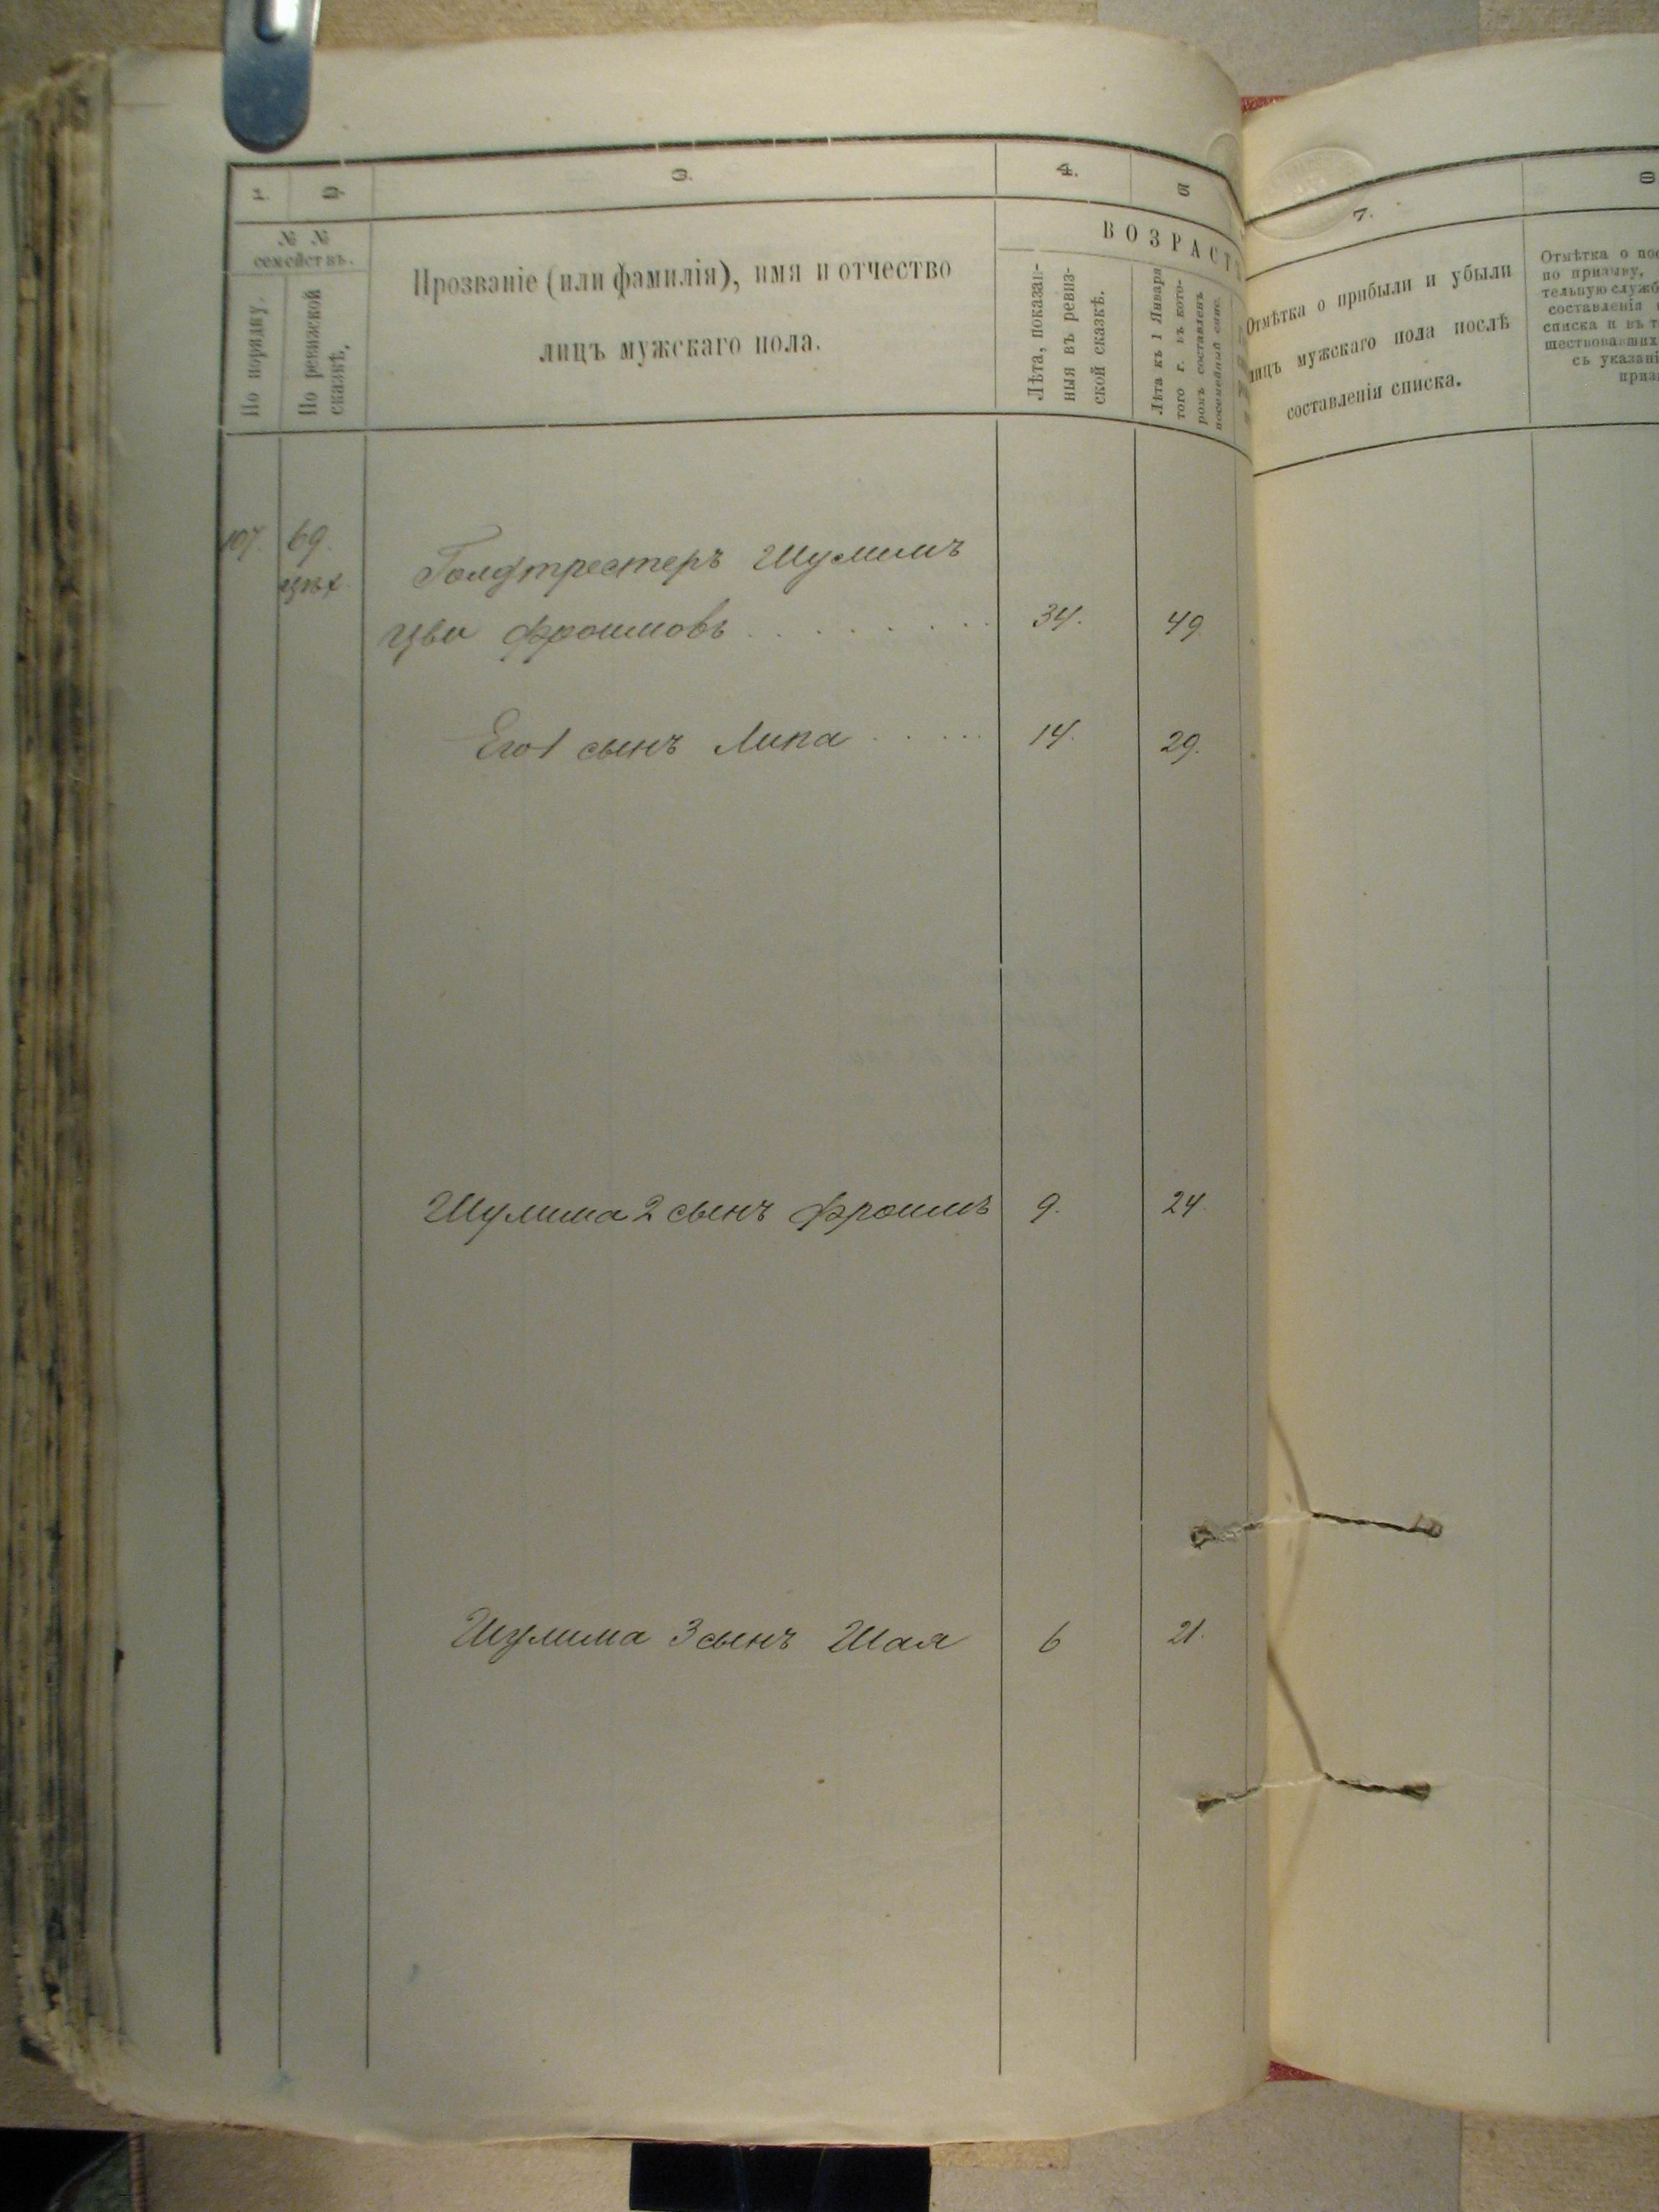 1.
2.
3.
4.
5
№ №
семействъ.
По порядку.
По ревижской
сказкѣ.
Прозваніе (или фамилія), имя и отчество
лицъ мужскаго пола.
ВОЗРАСТ
Лѣта, показан-
ныя въ ревиз-
ской сказкѣ.
Лѣта къ 1 Января
того г. въ кото-
ромъ составленъ
посемейный спис.
7.
Отмѣтка о прибыли и убыли
лицъ мужскаго пола послѣ
составленія списка.
Отмѣтка о
по призыву,
тельную служб
составленія
списка и въ
шествовавших
съ указані
107. 69.
цех.
Голдтрестеръ Шулимъ
Цви Фроимовъ . . . . . . . . . 34. 49
Его 1 сынъ Липа . . . . . 14. 29.
Шулима 2 сынъ Фроимъ 9. 24.
Шулима 3 сынъ Шая 6 21.